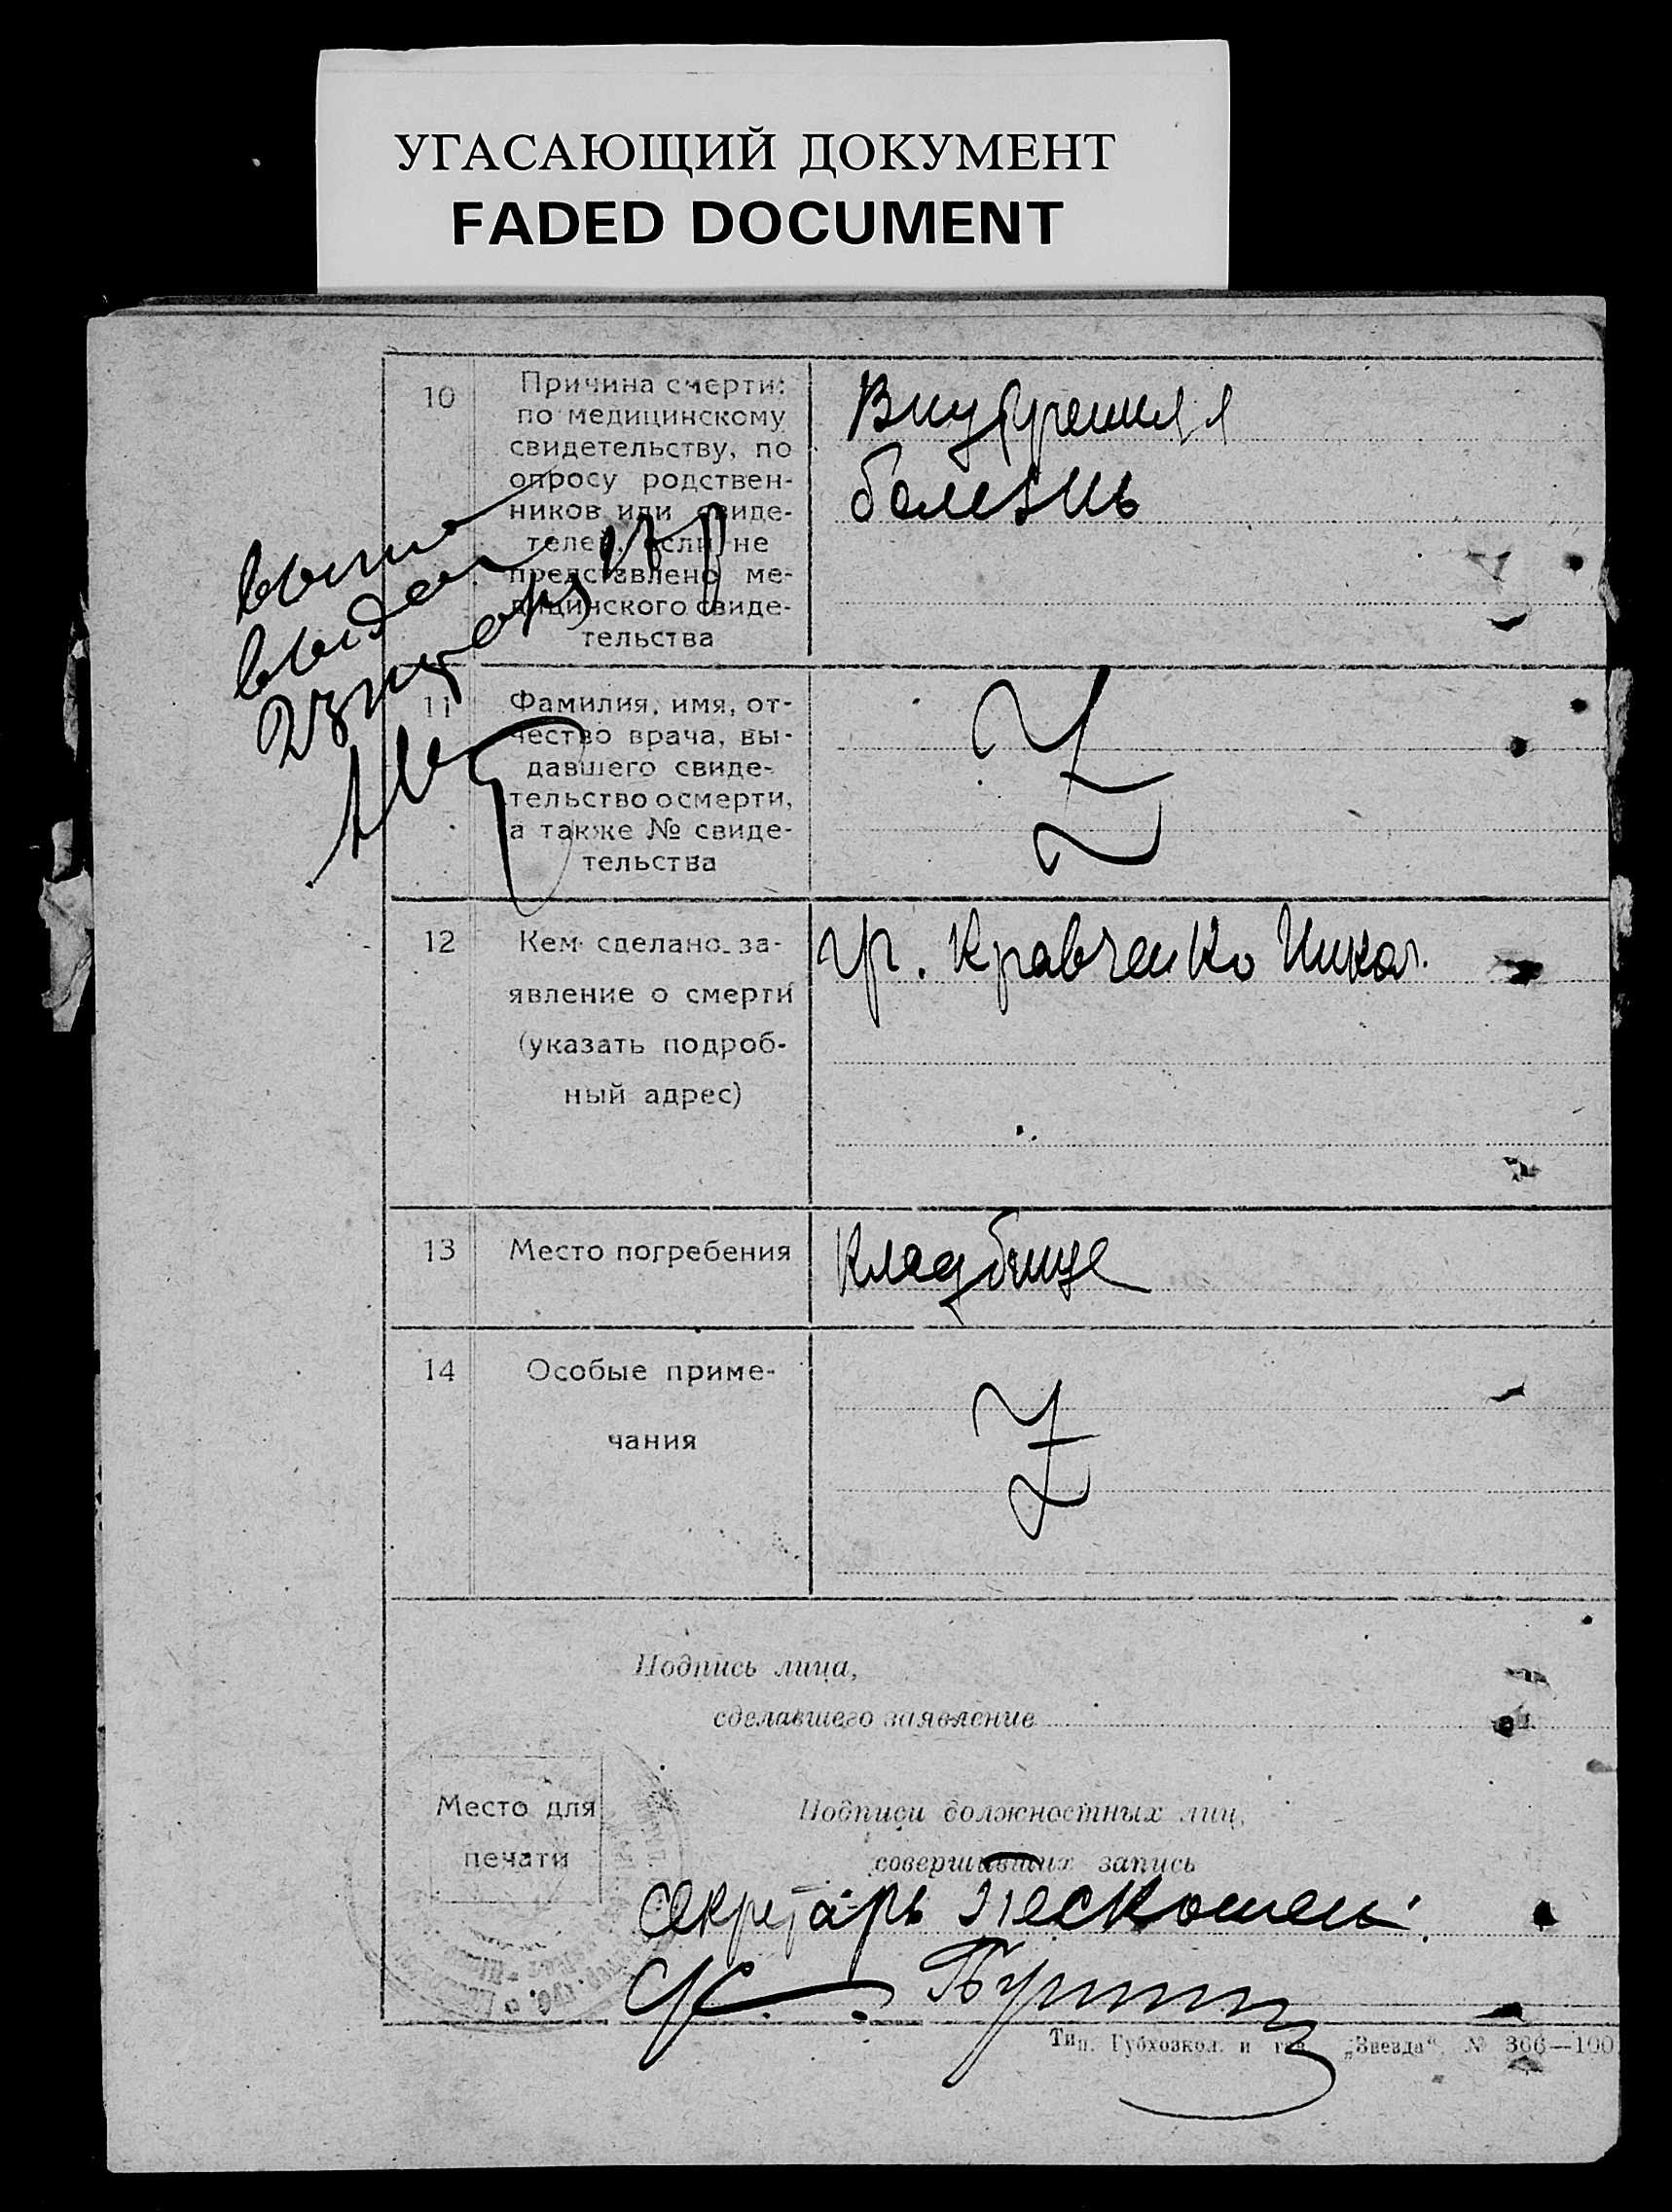 УГАСАЮЩИЙ ДОКУМЕНТ
FADED DOCUMENT
10
Причина смерти:
по медицинскому
свидетельству, по
опросу родствен-
ников или свиде-
телей, если не
представлено ме-
дицинского свиде-
тельства
Внутренняя
болезнь
выпис
выдан
11
Фамилия, имя, от-
чество врача, вы-
давшего свиде-
тельство о смерти,
а также № свиде-
тельства
Z
12
Кем сделано за-
явление о смерти
(указать подроб-
ный адрес)
гр. Кравченко Никол.
13
Место погребения
Кладбище
14
Особые приме-
чания
Z
Подпись лица,
сделавшего заявление
Место для
печати
Подписи должностных лиц,
совершивших запись
Секретарь
Тип. Губхозкол. и газ. „Звезда“. № 366—100